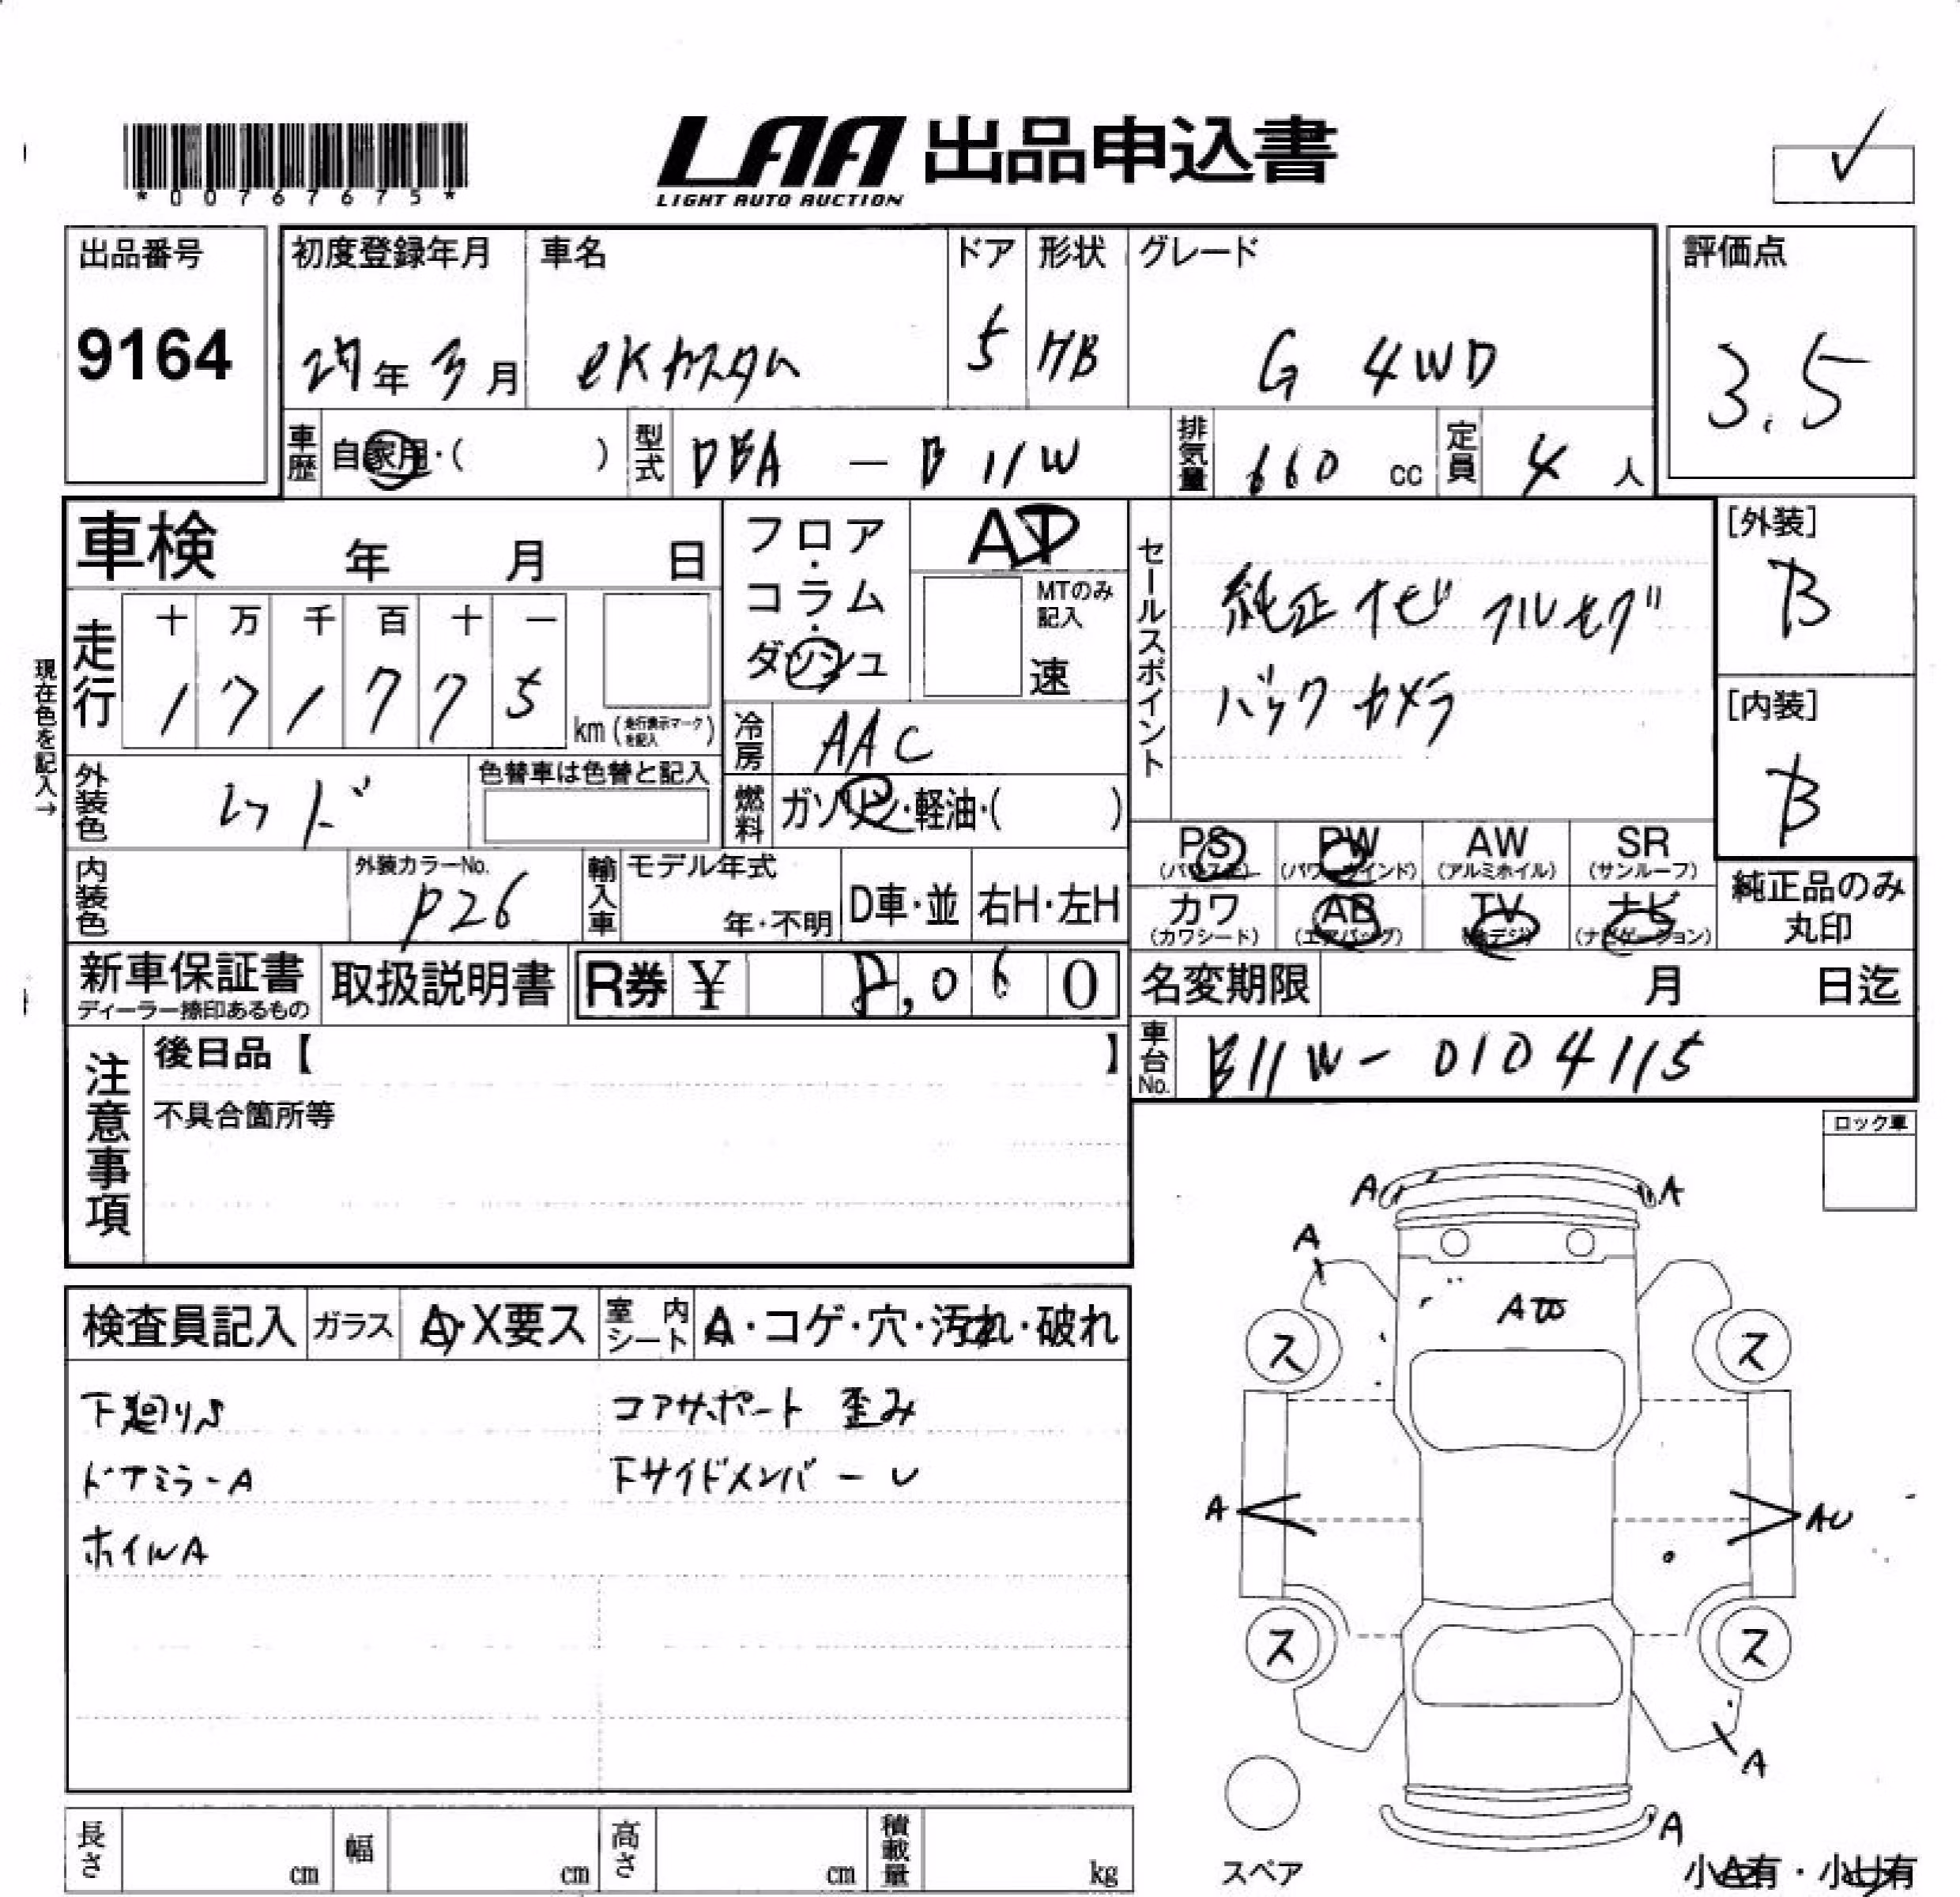 *0076765*
LAA 出品申込書
LIGHT AUTO AUCTION
出品番号
9164
初度登録年月
27年 3月
車名
eKカスタム
ドア
5
形状
HB
グレード
G 4WD
評価点
3.5
車歴
自家用・( )
型式
DBA - B11W
排気量
660 cc
定員
4 人
車検 年 月 日
フロア・コラム・ダッシュ
AT
MTのみ記入
速
セールスポイント
純正ナビ フルセグ
バックカメラ
[外装]
B
[内装]
B
現在色を記入→
走行
十 万 千 百 十 一
1 7 1 7 7 5
km (走行表示マークを記入)
冷房
AAC
外装色
レッド
色替車は色替と記入
燃料
ガソリン・軽油・( )
内装色
外装カラーNo.
P26
輸入車
モデル年式
年・不明
D車・並
右H・左H
PS
(パワステ)
PW
(パワーウインド)
AW
(アルミホイル)
SR
(サンルーフ)
カワ
(カワシート)
AB
(エアバッグ)
TV
(地デジ)
ナビ
(ナビゲーション)
純正品のみ
丸印
新車保証書
ディーラー捺印あるもの
取扱説明書
R券 ¥ 8,060
名変期限 月 日迄
車台No.
B11W-0104115
注意事項
後日品【 】
不具合箇所等
ロック車
検査員記入
ガラス
A・X要ス
室内シート
A・コゲ・穴・汚れ・破れ
下廻りS
コアサポート 歪み
ドアミラーA
下サイドメンバーU
ホイルA
A
A
A
ス
ス
A
AU
ス
ス
A
A
スペア
小A有・小U有
長さ cm
幅 cm
高さ cm
積載量 kg